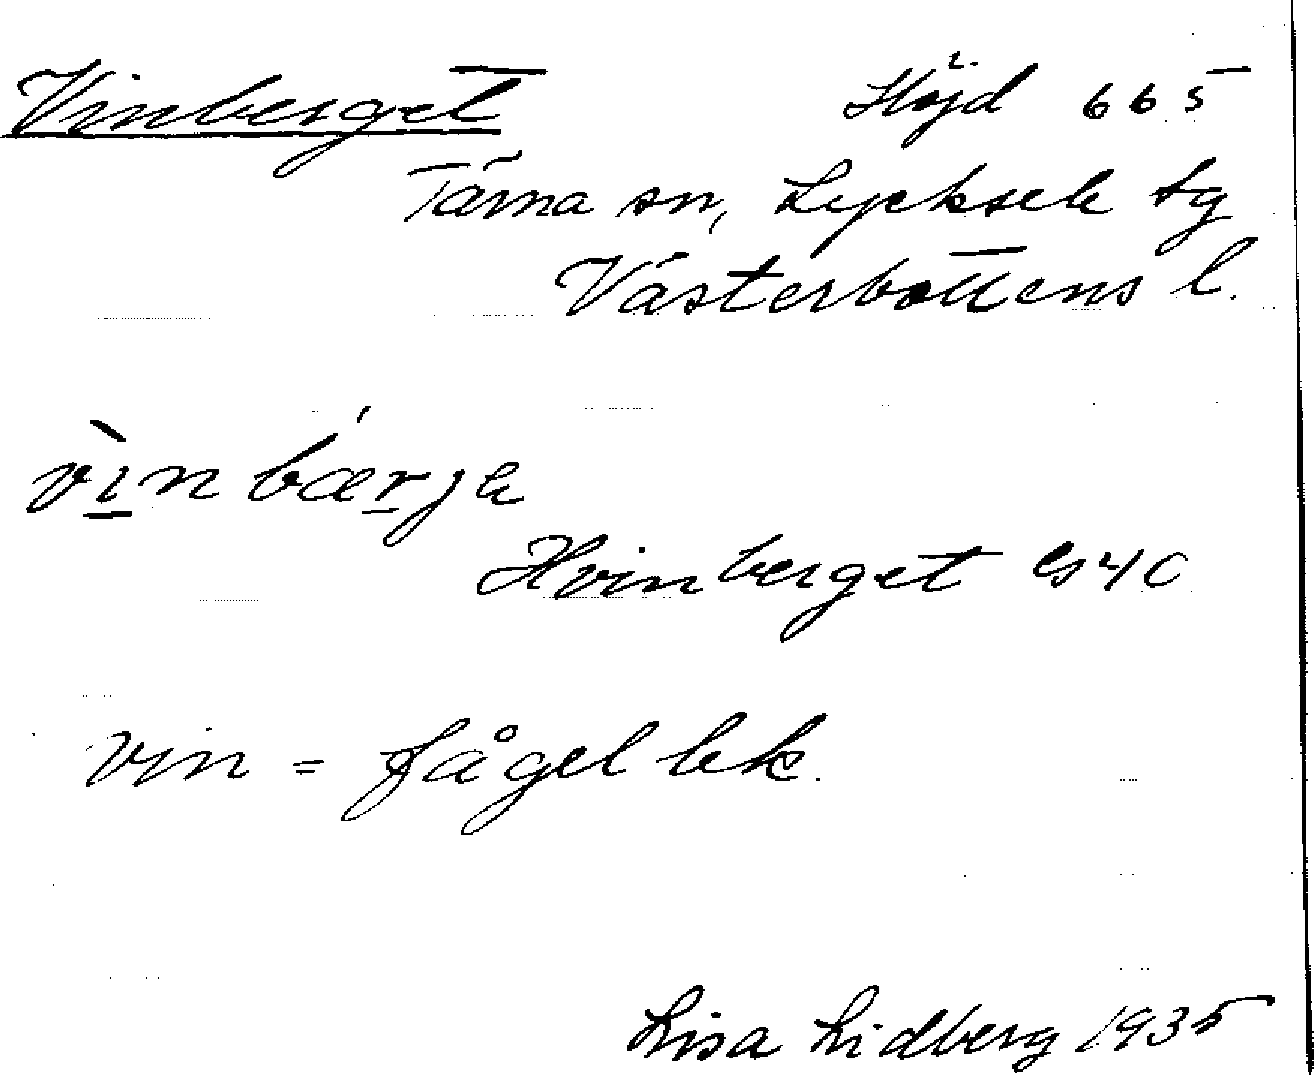 Vinberget Höjd 665
Tärna sn, Lycksele tg
Västerbottens l.
vìnbǽrje
Hvinberget GS4C
vin = fågellek.
Lisa Lidberg 1935